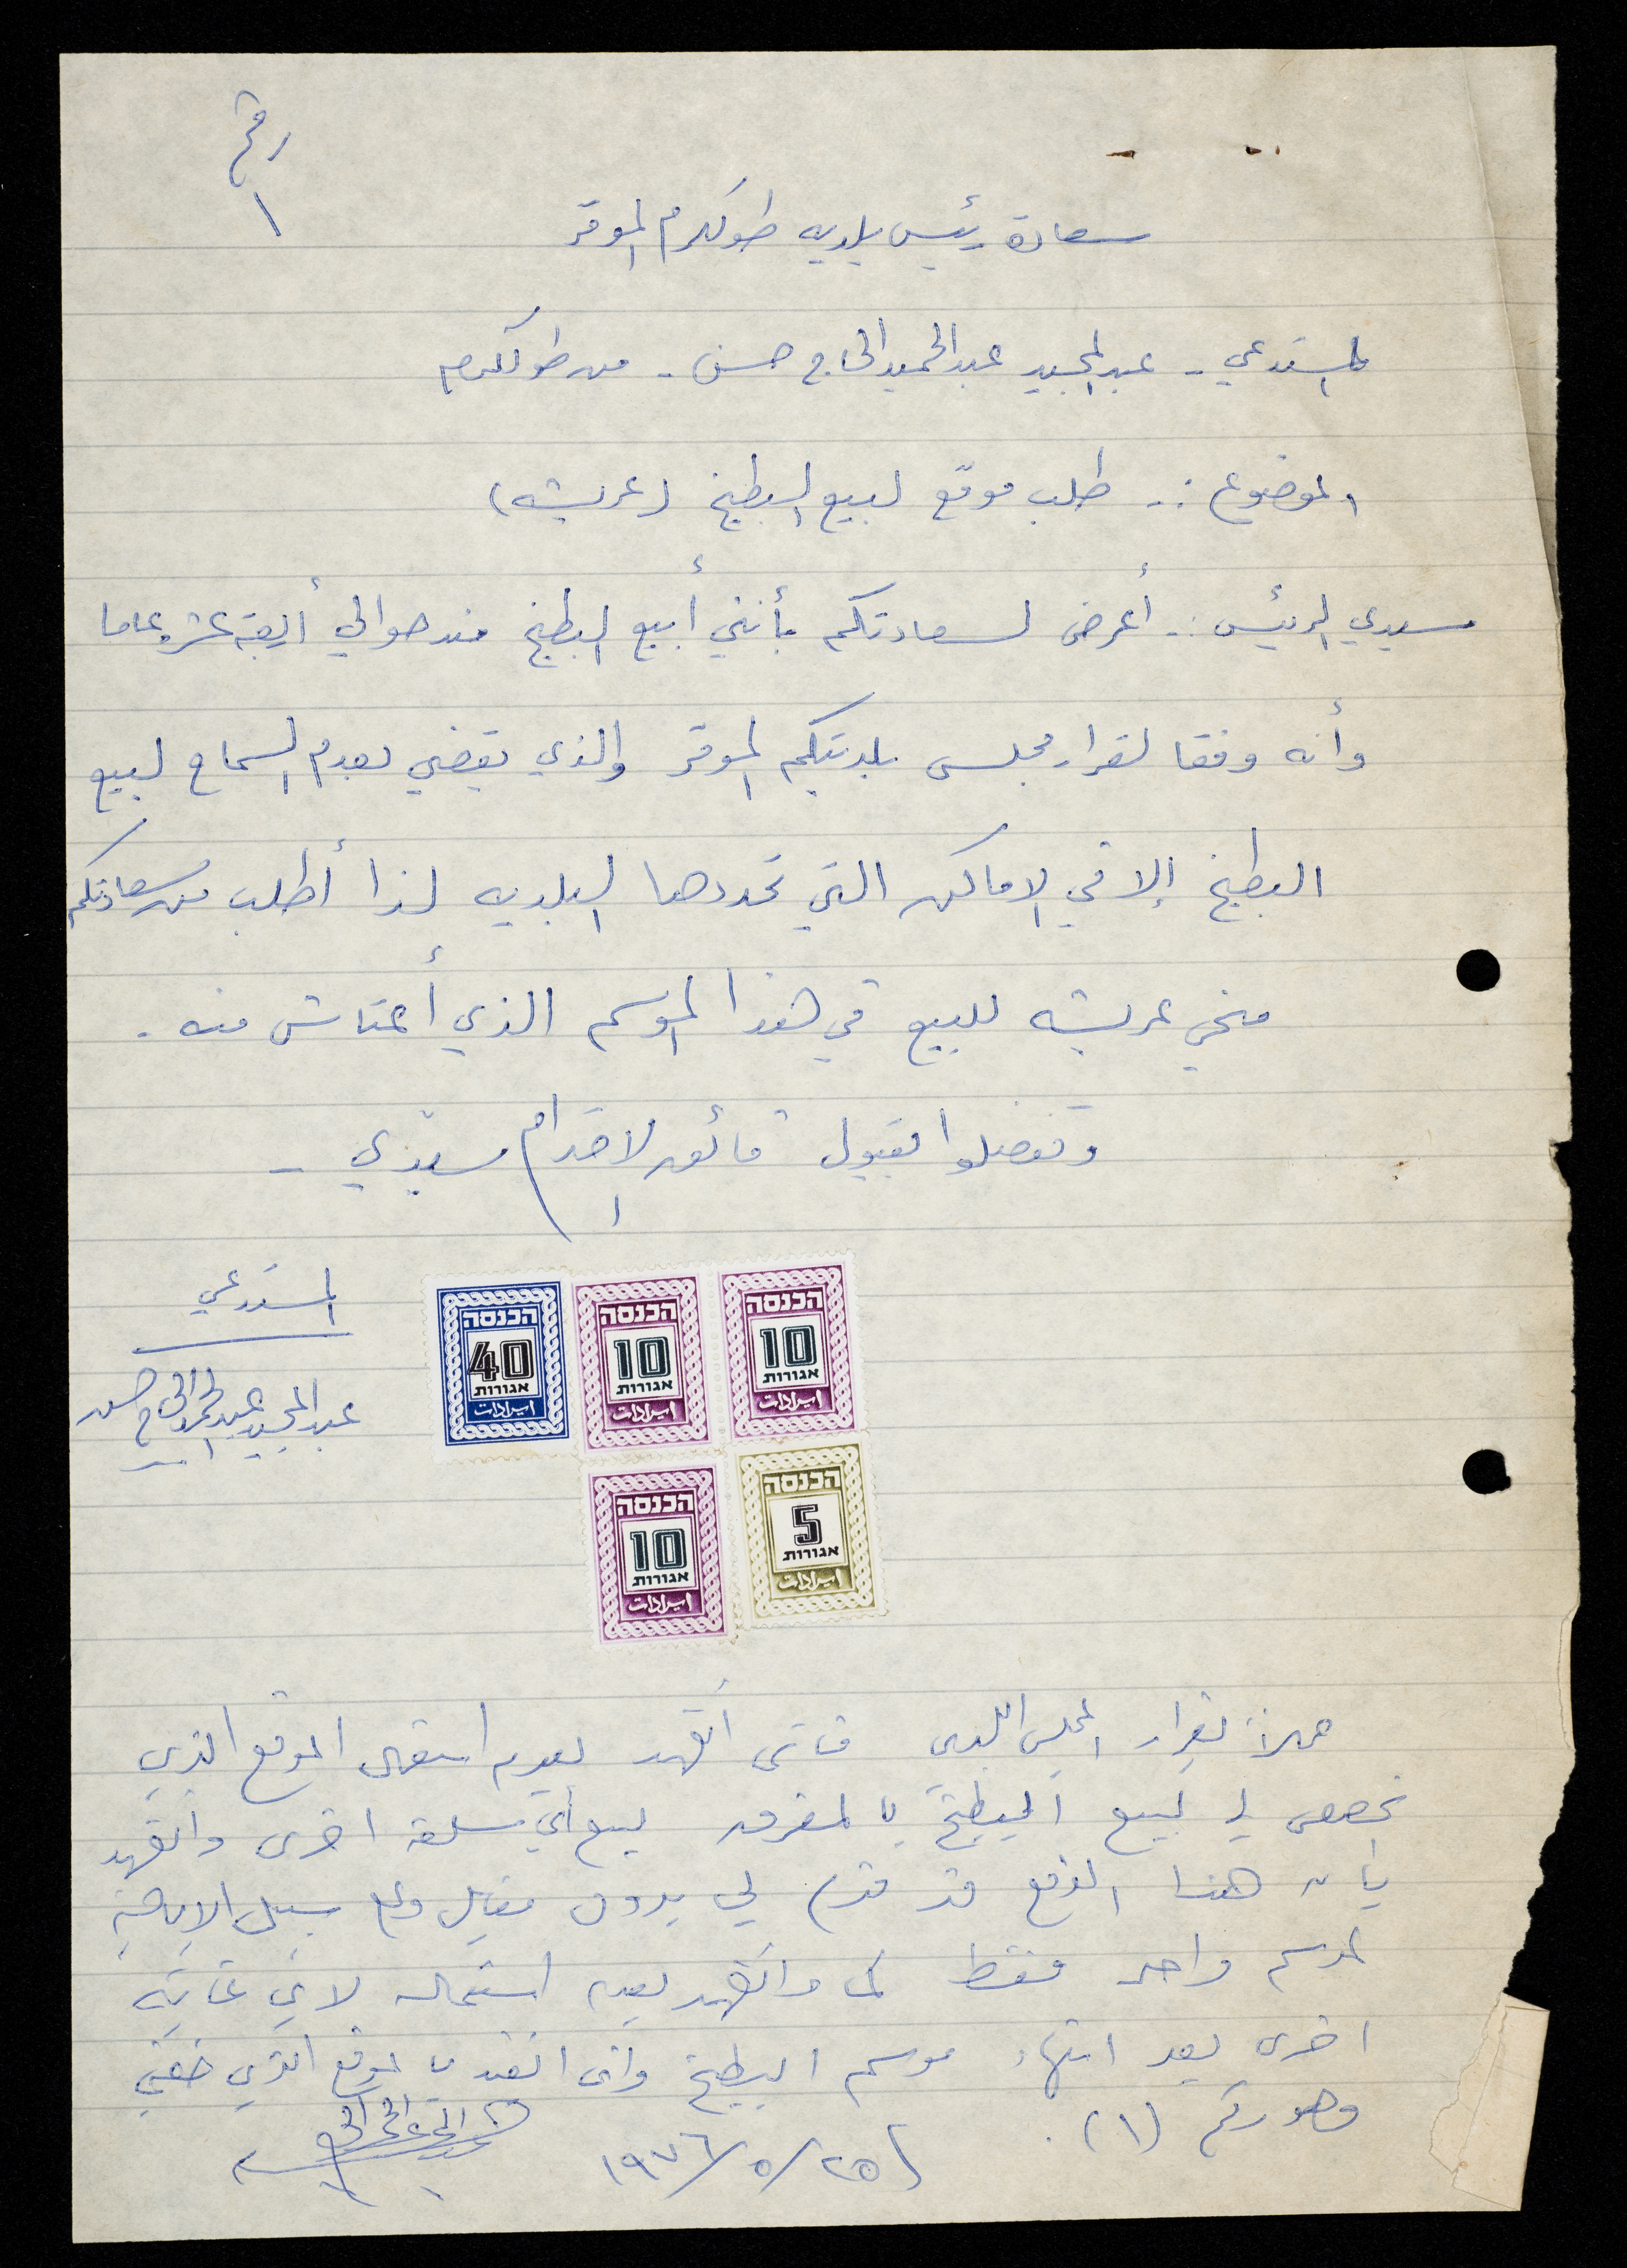 رقم
١
سعادة رئيس بلديه طولكرم الموقر
المستدعي - عبد المجيد عبد الحميد الحاج حسن - من طولكرم
الموضوع :- طلب موقع لبيع البطيخ (عريشه)
سيدي الرئيس :- أعرض لسعادتكم بأنني أبيع البطيخ منذ حوالي أربعة عشر عاما
وأنه وفقا لقرار مجلس بلديتكم الموقر والذي يقضي بعدم السماح لبيع
البطيخ إلا في الاماكن التي تحددها البلديه لذا أطلب من سعادتكم
منحي عريشه للبيع في هذا الموسم الذي أعتاش منه .
وتفضلوا بقبول فائق الاحترام سيدي -
المستدعي
عبد المجيد عبد الحميد الحاج حسن
הכנסה
40
אגורות
ايرادات
הכנסה
10
אגורות
ايرادات
הכנסה
10
אגורות
ايرادات
הכנסה
10
אגורות
ايرادات
הכנסה
5
אגורות
ايرادات
عملاً بقرار المجلس البلدي فانني أتعهد بعدم استعمال الموقع الذي
يخصص لي لبيع البطيخ بالمفرق لبيع أي سلعة اخرى واتعهد
بأن هذا الموقع قد قدم لي بدون مقابل وعلى سبيل الاباحة
لموسم واحد فقط كما واتعهد بعدم استعماله لاي غاية
اخرى بعد انتهاء موسم البطيخ واني اتقيد بالموقع الذي خصني
وهو رقم (١).
١٩٧٦/٥/٢٥